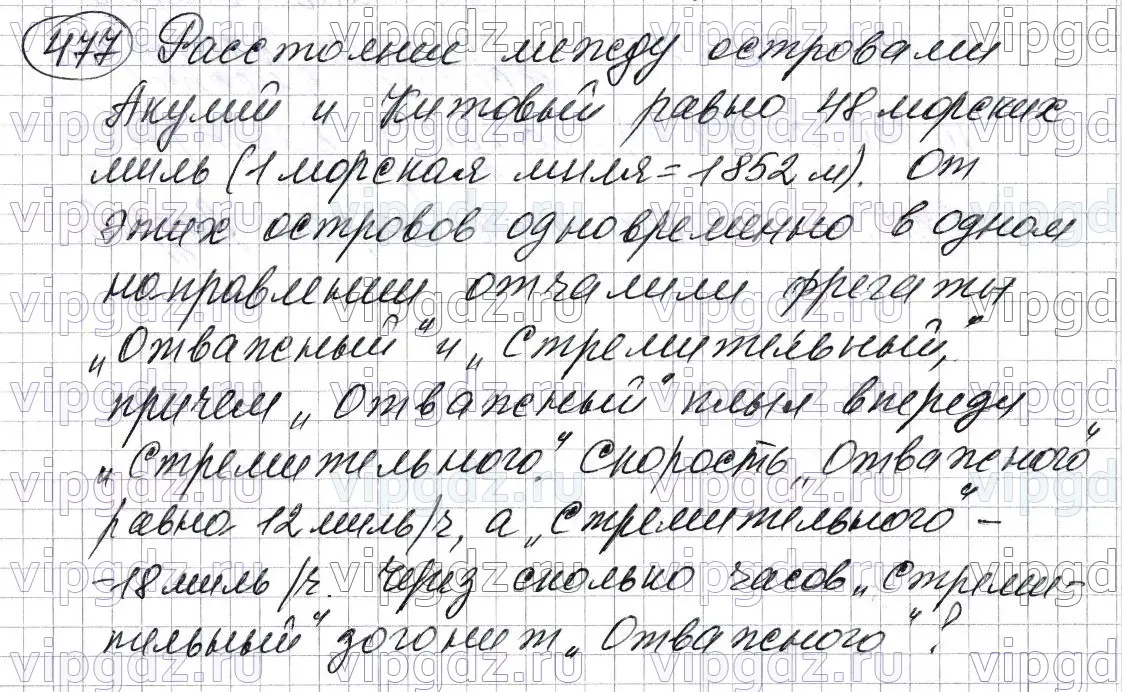 477 Расстояние между островами
Акулий и Китовый равно 48 морских
миль (1 морская миля = 1852 м). От
этих островов одновременно в одном
направлении отчалили фрегаты
„Отважный" и „Стремительный",
причем „Отважный" плыл впереди
„Стремительного". Скорость „Отважного"
равна 12 миль/ч, а „Стремительного" –
– 18 миль/ч. Через сколько часов „Стреми-
тельный" догонит „Отважного"?
vipgdz.ru